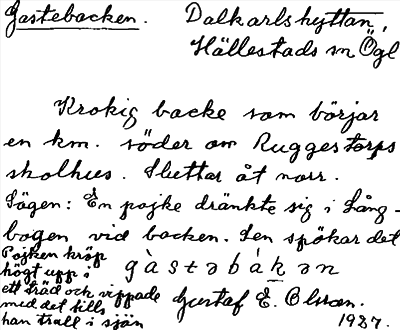 Gastebacken. Dalkarlshyttan,
Hällestads sn Ögl
Krokig backe som börjar
en km. söder om Ruggestorps
skolhus. Sluttar åt norr.
Sägen: En pojke dränkte sig i Lång-
bogen vid backen. Sen spökar det
Pojken kröp
högt upp i
ett träd och vippade
med det tills
han trall i sjön
gàstəbàkən
Gustaf E. Olsson.
1927.